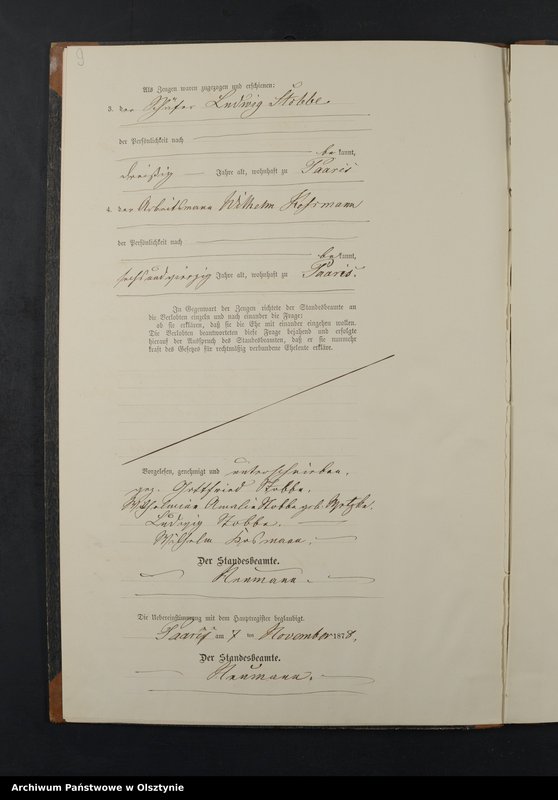 9
Als Zeugen waren zugezogen und erschienen:
3. der Schäfer Ludwig Stobbe
der Persönlichkeit nach
be kannt,
dreißig Jahre alt, wohnhaft zu Paaris
4. der Arbeitsmann Wilhelm Kosmann
der Persönlichkeit nach
be kannt,
sechsundvierzig Jahre alt, wohnhaft zu Paaris.
In Gegenwart der Zeugen richtete der Standesbeamte an
die Verlobten einzeln und nach einander die Frage:
ob sie erklären, daß sie die Ehe mit einander eingehen wollen.
Die Verlobten beantworteten diese Frage bejahend und erfolgte
hierauf der Ausspruch des Standesbeamten, daß er sie nunmehr
kraft des Gesetzes für rechtmäßig verbundene Eheleute erkläre.
Vorgelesen, genehmigt und unterschrieben.
gez. Gottfried Stobbe.
Wilhelmine Amalie Stobbe geb.
Ludwig Stobbe.
Wilhelm Kosmann.
Der Standesbeamte.
Neumann.
Die Uebereinstimmung mit dem Hauptregister beglaubigt.
Paaris am 7 ten November 1878.
Der Standesbeamte.
Neumann.
Archiwum Państwowe w Olsztynie